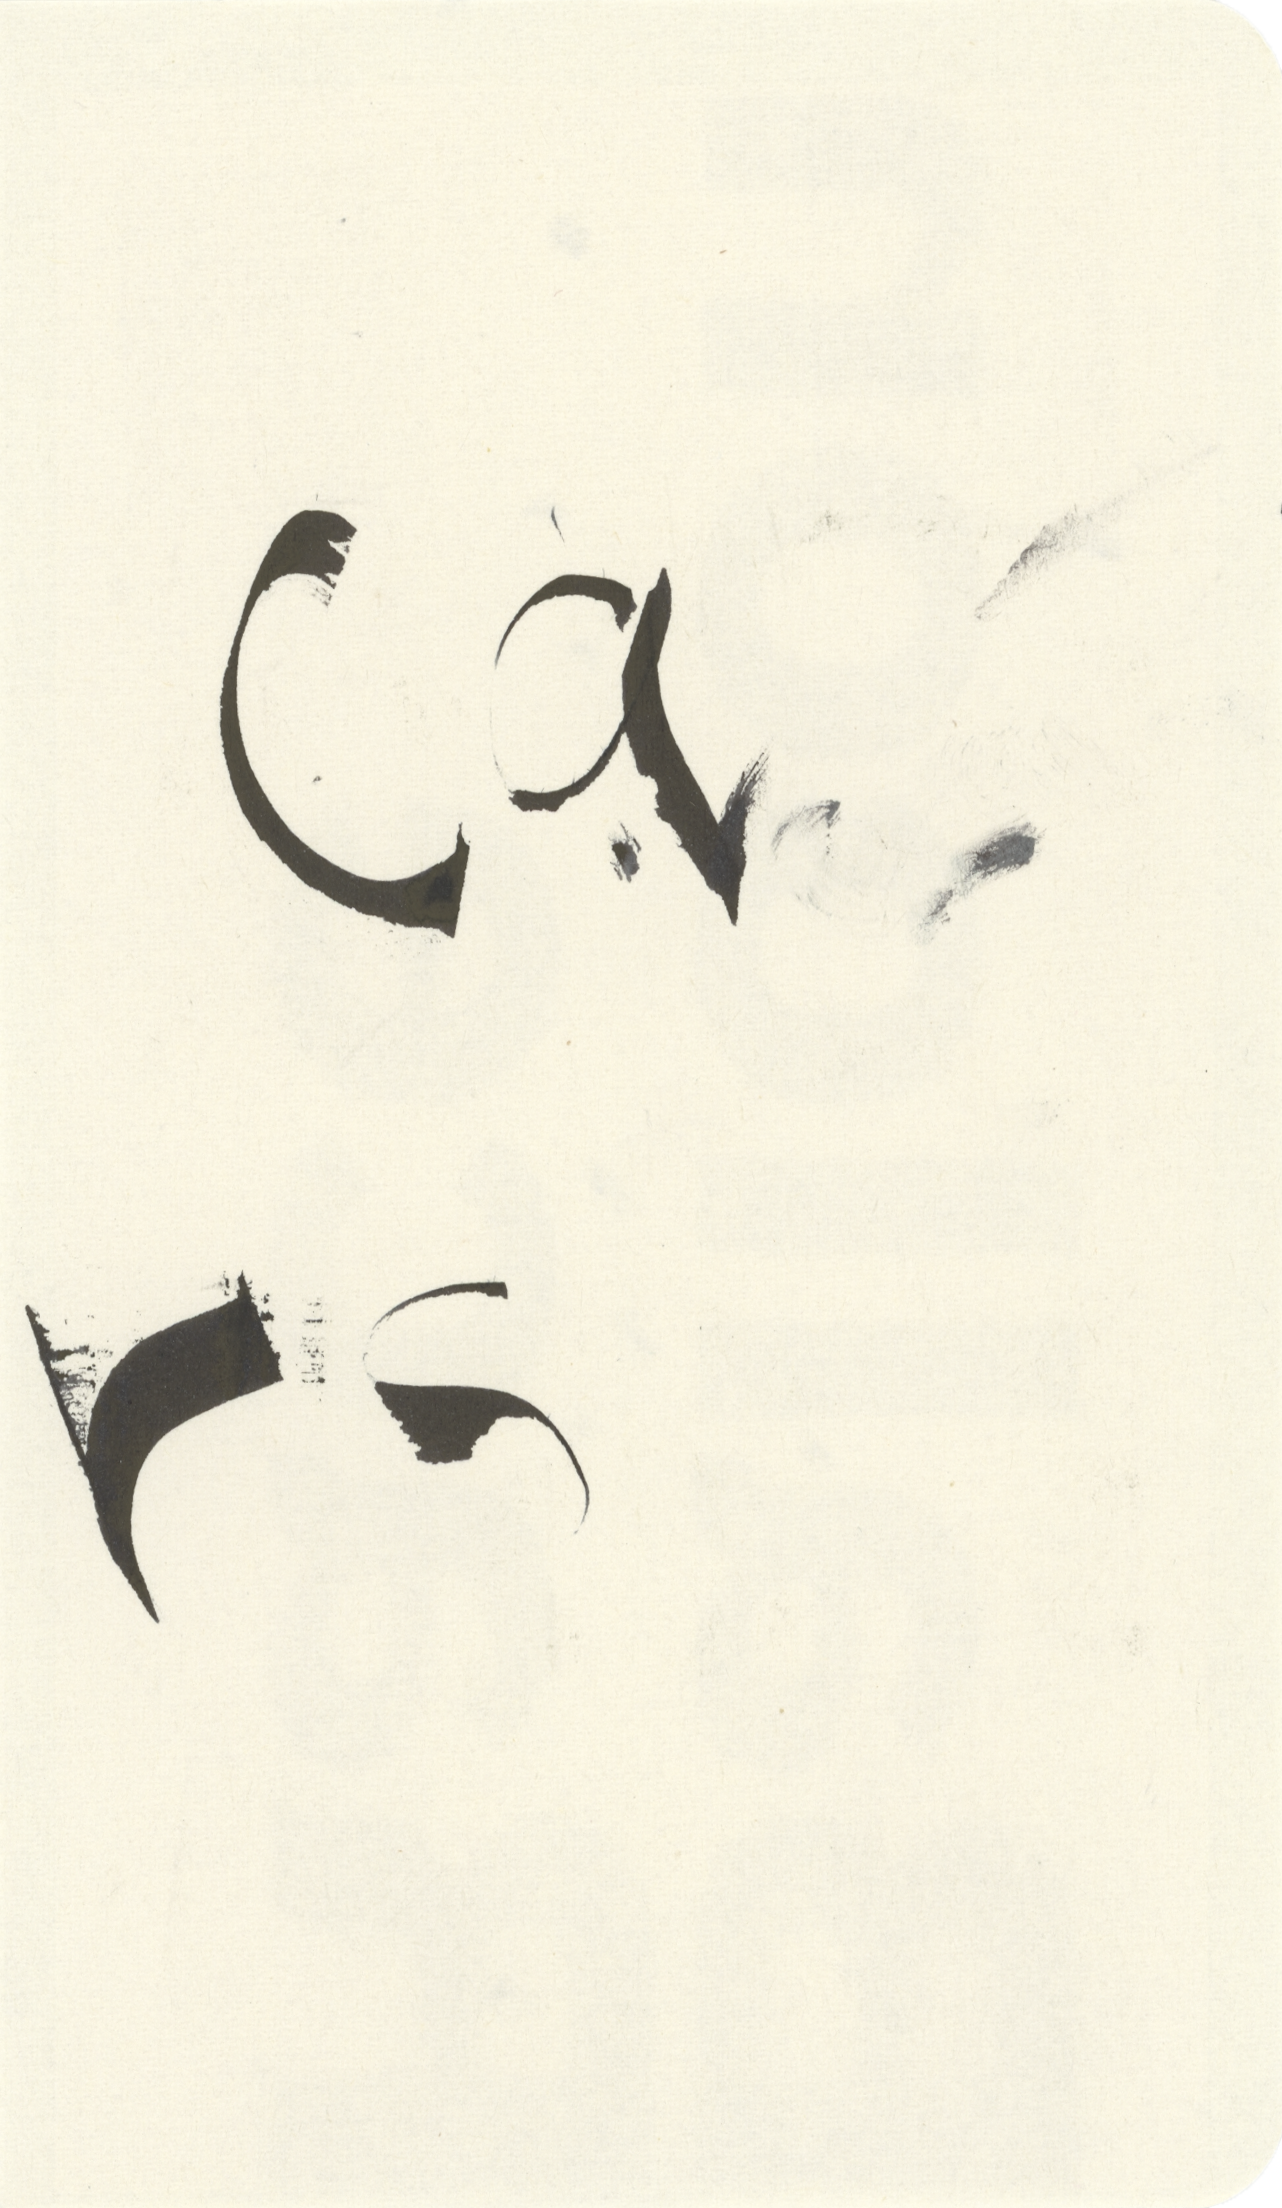 Ca
rs